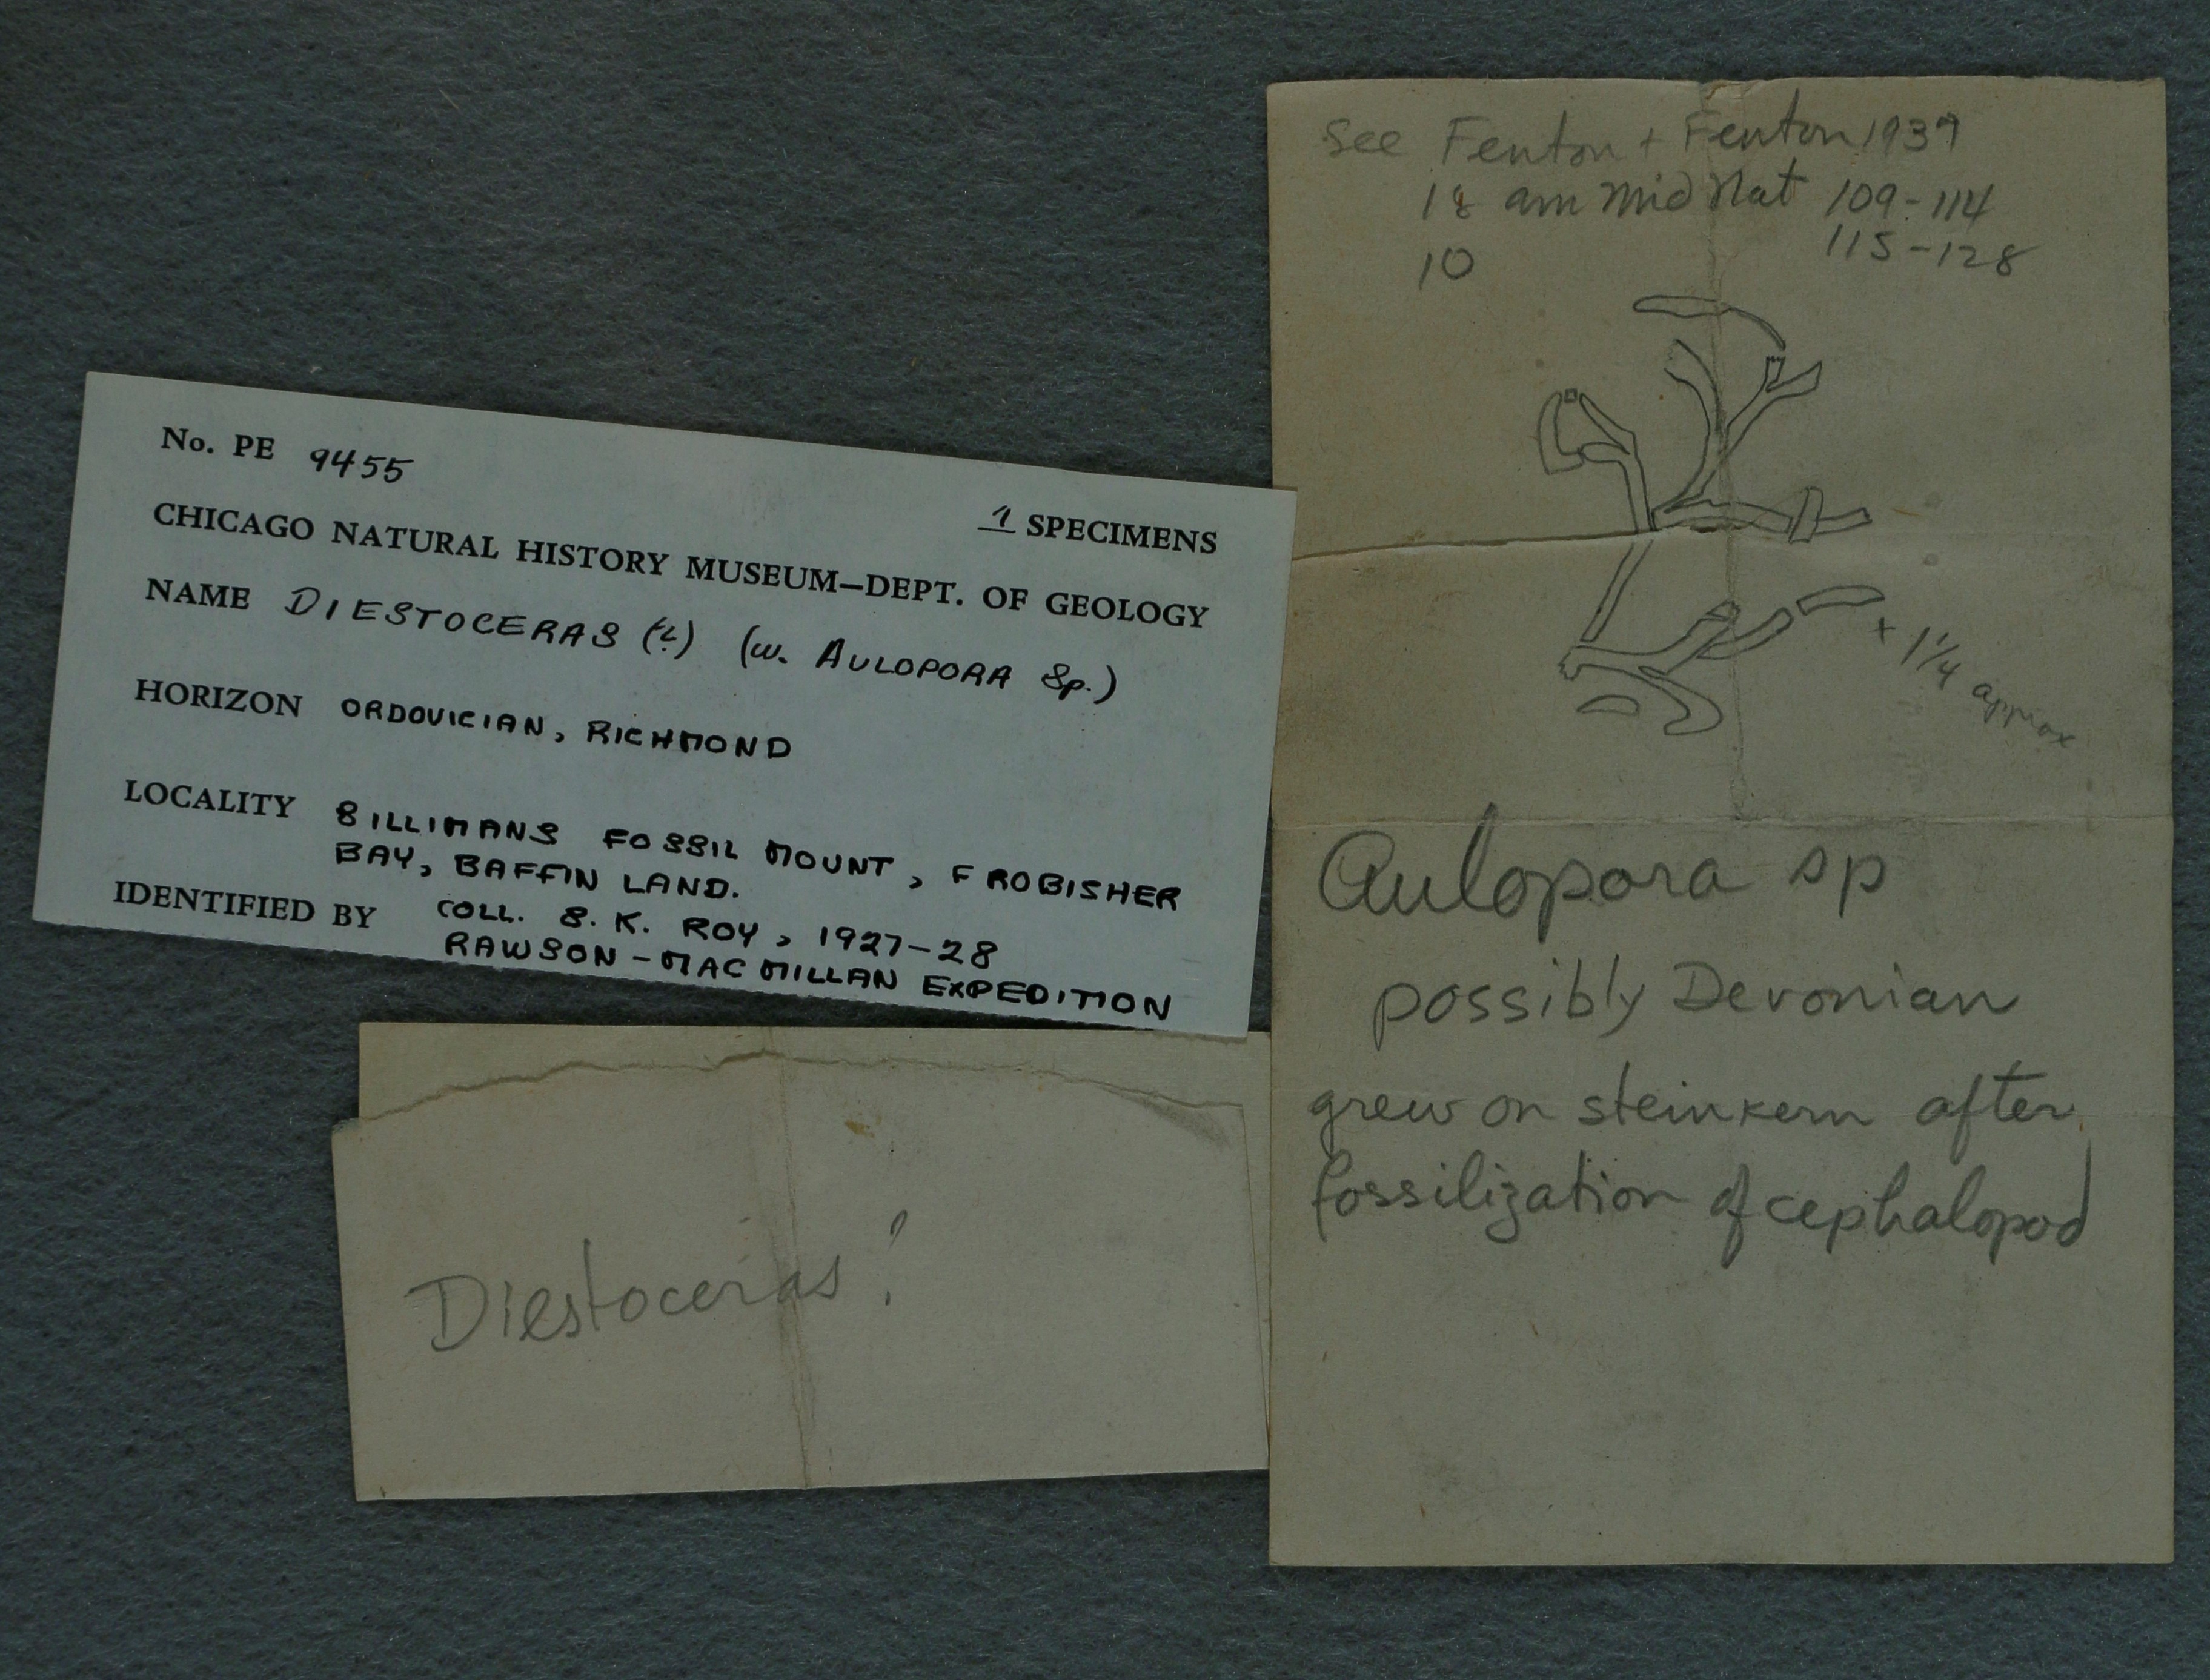 No. PE 9455
1 SPECIMENS
CHICAGO NATURAL HISTORY MUSEUM—DEPT. OF GEOLOGY
NAME DIESTOCERAS (?) (w. AULOPORA Sp.)
HORIZON ORDOVICIAN, RICHMOND
LOCALITY SILLIMANS FOSSIL MOUNT, FROBISHER
BAY, BAFFIN LAND.
IDENTIFIED BY COLL. S. K. ROY, 1927-28
RAWSON-MACMILLAN EXPEDITION
Diestoceras?
See Fenton + Fenton 1937
18 am Mid Nat 109-114
10 115-128
x 1 1/4 approx
Aulopora sp
possibly Devonian
grew on steinkern after
fossilization of cephalopod